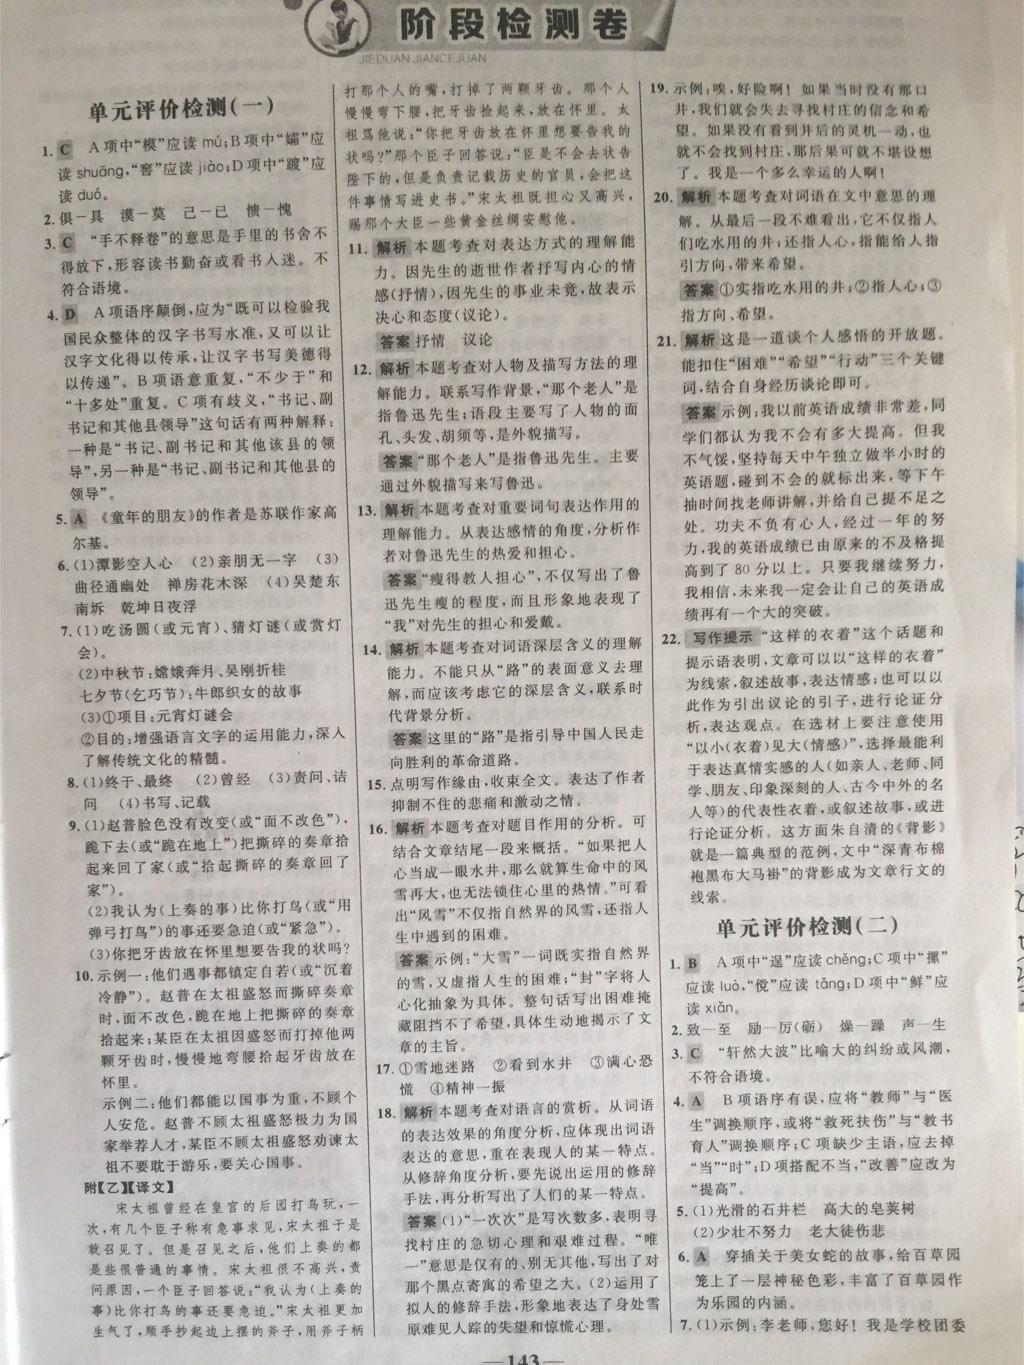 阶段检测卷
JIEDUAN JIANCEJUAN
单元评价检测(一)
1. C　A项中“模”应读 mú;B项中“孀”应
读 shuāng,“窖”应读 jiào;D项中“踱”应
读 duó。
2. 俱—具　漠—莫　己—已　愦—愧
3. C　“手不释卷”的意思是手里的书舍不
得放下,形容读书勤奋或看书入迷。不
符合语境。
4. D　A项语序颠倒,应为“既可以检验我
国民众整体的汉字书写水准,又可以让
汉字文化得以传承,让汉字书写美德得
以传递”。B项语意重复,“不少于”和
“十多处”重复。C项有歧义,“书记、副
书记和其他县领导”这句话有两种解释:
一种是“书记、副书记和其他该县的领
导”,另一种是“书记、副书记和其他县的
领导”。
5. A　《童年的朋友》的作者是苏联作家高
尔基。
6. (1)潭影空人心　(2)亲朋无一字　(3)
曲径通幽处　禅房花木深　(4)吴楚东
南坼　乾坤日夜浮
7. (1)吃汤圆(或元宵)、猜灯谜(或赏灯
会)。
(2)中秋节:嫦娥奔月、吴刚折桂
七夕节(乞巧节):牛郎织女的故事
(3)①项目:元宵灯谜会
②目的:增强语言文字的运用能力,深入
了解传统文化的精髓。
8. (1)终于、最终　(2)曾经　(3)责问、诘
问　(4)书写、记载
9. (1)赵普脸色没有改变(或“面不改色”),
跪下去(或“跪在地上”)把撕碎的奏章拾
起来回了家(或“拾起撕碎的奏章回了
家”)。
(2)我认为(上奏的事)比你打鸟(或“用
弹弓打鸟”)的事还要急迫(或“紧急”)。
(3)你把牙齿放在怀里想要告我的状吗?
10. 示例一:他们遇事都镇定自若(或“沉着
冷静”)。赵普在太祖盛怒而撕碎奏章
时,面不改色,跪在地上把撕碎的奏章
拾起来;某臣在太祖因盛怒而打掉他两
颗牙齿时,慢慢地弯腰拾起牙齿放在
怀里。
示例二:他们都能以国事为重,不顾个
人安危。赵普不顾太祖盛怒极力为国
家举荐人才,某臣不顾太祖盛怒劝谏太
祖不要耽于游乐,要关心国事。
附【乙】【译文】
宋太祖曾经在皇宫的后园打鸟玩,一
次,有几个臣子称有急事求见,宋太祖于是
就召见了。但是召见之后,他们上奏的都
是些很普通的事情。宋太祖很不高兴,责
问原因,一个臣子回答说:“我认为(上奏的
事)比你打鸟的事还要急迫。”宋太祖更加
生气了,顺手抄起边上摆的斧子,用斧子柄
打那个人的嘴,打掉了两颗牙齿。那个人
慢慢弯下腰,把牙齿捡起来,放在怀里。太
祖骂他说:“你把牙齿放在怀里想要告我的
状吗?”那个臣子回答说:“臣是不会去状告
陛下的,但是负责记载历史的官员,会把这
件事情写进史书。”宋太祖既担心又高兴,
赐那个大臣一些黄金丝绸安慰他。
11. 解析 本题考查对表达方式的理解能
力。因先生的逝世作者抒写内心的情
感(抒情),因先生的事业未竟,故表示
决心和态度(议论)。
答案 抒情　议论
12. 解析 本题考查对人物及描写方法的理
解能力。联系写作背景,“那个老人”是
指鲁迅先生;语段主要写了人物的面
孔、头发、胡须等,是外貌描写。
答案 “那个老人”是指鲁迅先生。主要
通过外貌描写来写鲁迅。
13. 解析 本题考查对重要词句表达作用的
理解能力。从表达感情的角度,分析作
者对鲁迅先生的热爱和担心。
答案 “瘦得教人担心”,不仅写出了鲁
迅先生瘦的程度,而且形象地表现了
“我”对先生的担心和爱戴。
14. 解析 本题考查对词语深层含义的理解
能力。不能只从“路”的表面意义去理
解,而应该考虑它的深层含义,联系时
代背景分析。
答案 这里的“路”是指引导中国人民走
向胜利的革命道路。
15. 点明写作缘由,收束全文。表达了作者
抑制不住的悲痛和激动之情。
16. 解析 本题考查对题目作用的分析。可
结合文章结尾一段来概括。“如果把人
心当成一眼水井,那么就算生命中的风
雪再大,也无法锁住心里的热情。”可看
出“风雪”不仅指自然界的风雪,还指人
生中遇到的困难。
答案 示例:“大雪”一词既实指自然界
的雪,又虚指人生的困难;“封”字将人
心化抽象为具体。整句话写出困难掩
藏阻挡不了希望,具体生动地揭示了文
章的主旨。
17. ①雪地迷路　②看到水井　③满心恐
慌　④精神一振
18. 解析 本题考查对语言的赏析。从词语
的表达效果的角度分析,应体现出词语
表达的意思,重在表现人的某一特点。
从修辞角度分析,要先说出运用的修辞
手法,再分析写出了人们的某一特点。
答案 (1)“一次次”是写次数多,表明寻
找村庄的急切心理和艰难过程。“唯
一”意思是仅有的、别无其他,写出了对
那个黑点寄寓的希望之大。(2)运用了
拟人的修辞手法,形象地表达了身处雪
原难见人踪的失望和惊慌心理。
19. 示例:唉,好险啊!如果当时没有那口
井,我们就会失去寻找村庄的信念和希
望。如果没有看到井后的灵机一动,也
就不会找到村庄,那后果可就不堪设想
了。我是一个多么幸运的人啊!
20. 解析 本题考查对词语在文中意思的理
解。从最后一段不难看出,它不仅指人
们吃水用的井;还指人心,指能给人指
引方向,带来希望。
答案 ①实指吃水用的井;②指人心;③
指方向、希望。
21. 解析 这是一道谈个人感悟的开放题。
能扣住“困难”“希望”“行动”三个关键
词,结合自身经历谈论即可。
答案 示例:我以前英语成绩非常差,同
学们都认为我不会有多大提高。但我
不气馁,坚持每天中午独立做半小时的
英语题,碰到不会的就标出来,等下午
抽时间找老师讲解,并给自己提不足之
处。功夫不负有心人,经过一年的努
力,我的英语成绩已由原来的不及格提
高到了80分以上。只要我继续努力,
我相信,未来我一定会让自己的英语成
绩再有一个大的突破。
22. 写作提示 “这样的衣着”这个话题和
提示语表明,文章可以以“这样的衣着”
为线索,叙述故事,表达情感;也可以以
此作为引出议论的引子,进行论证分
析,表达观点。在选材上要注意使用
“以小(衣着)见大(情感)”,选择最能利
于表达真情实感的人(如亲人、老师、同
学、朋友、印象深刻的人、古今中外的名
人等)的代表性衣着,或叙述故事,或进
行论证分析。这方面朱自清的《背影》
就是一篇典型的范例,文中“深青布棉
袍黑布大马褂”的背影成为文章行文的
线索。
单元评价检测(二)
1. B　A项中“逞”应读 chěng;C项中“摞”
应读 luò,“傥”应读 tǎng;D项中“鲜”应
读 xiǎn。
2. 致—至　励—厉(砺)　燥—躁　声—生
3. C　“轩然大波”比喻大的纠纷或风潮,
不符合语境。
4. A　B项语序有误,应将“教师”与“医
生”调换顺序,或将“救死扶伤”与“教书
育人”调换顺序;C项缺少主语,应去掉
“当”“时”;D项搭配不当,“改善”应改为
“提高”。
5. (1)光滑的石井栏　高大的皂荚树
(2)少壮不努力　老大徒伤悲
6. A　穿插关于美女蛇的故事,给百草园
笼上了一层神秘色彩,丰富了百草园作
为乐园的内涵。
7. (1)示例:李老师,您好!我是学校团委
—143—